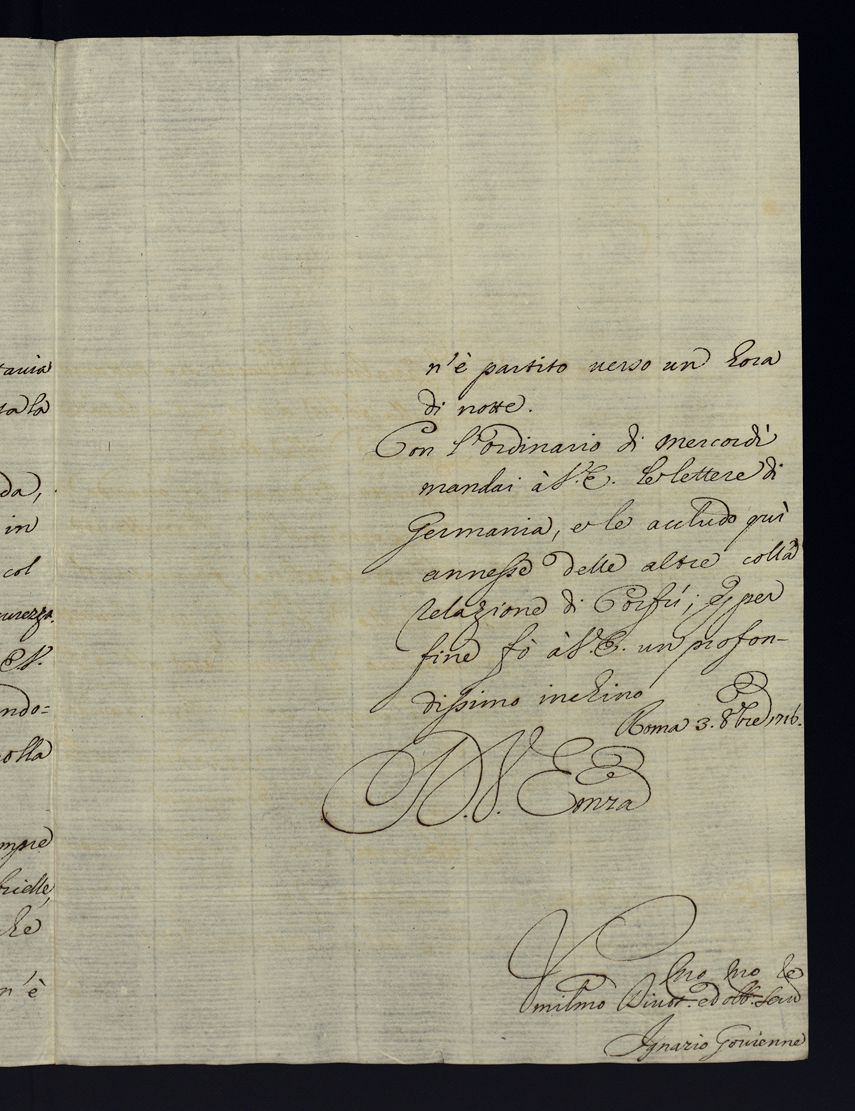 tavia
ta la
da,
in
col
urezza.
E.V.
ndo=
colla
mpre
bielle,
he
n'è
n'è partito verso un hora
di notte.
Con l'ordinario di mercordì
mandai à V.E. le lettere di
Germania, e le accludo quì
annesse delle altre colla
relazione di Corfú; e per
fine fò à V.E. un profon-
dissimo inchino
Roma 3. 8bre 1716.
D.V. Emza
Vmilmo Divot. ed obb. Ser
Ignazio